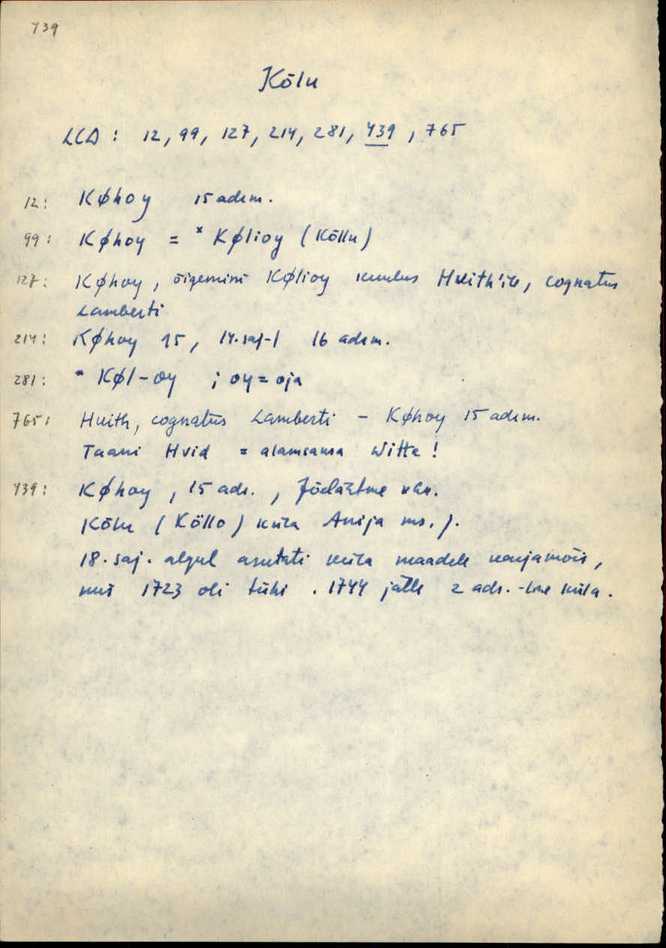 439
Kõlu
LCD : 12, 99, 127, 214, 281, 439, 765
12: Køhoy 15 adrm.
99: Køhoy = *Kølioy (Kõllu)
127: Køhoy, õigemini Kølioy kuulus Hvith'ile, cognatus
Lamberti
214: Køhoy 15, 14. saj-l 16 adrm.
281: * Køl-oy ; oy = oja
765: Huith, cognatus Lamberti – Køhoy 15 adrm.
Taani Hvid = alamsaksa Witte!
439: Køhoy, 15 adr., Jõelähtme khk.
Kõlu (Köllo) küla Anija ms. j.
18. saj. algul asutati küla maadele karjamõis,
mis 1723 oli tühi. 1744 jälle 2 adr.-line küla.